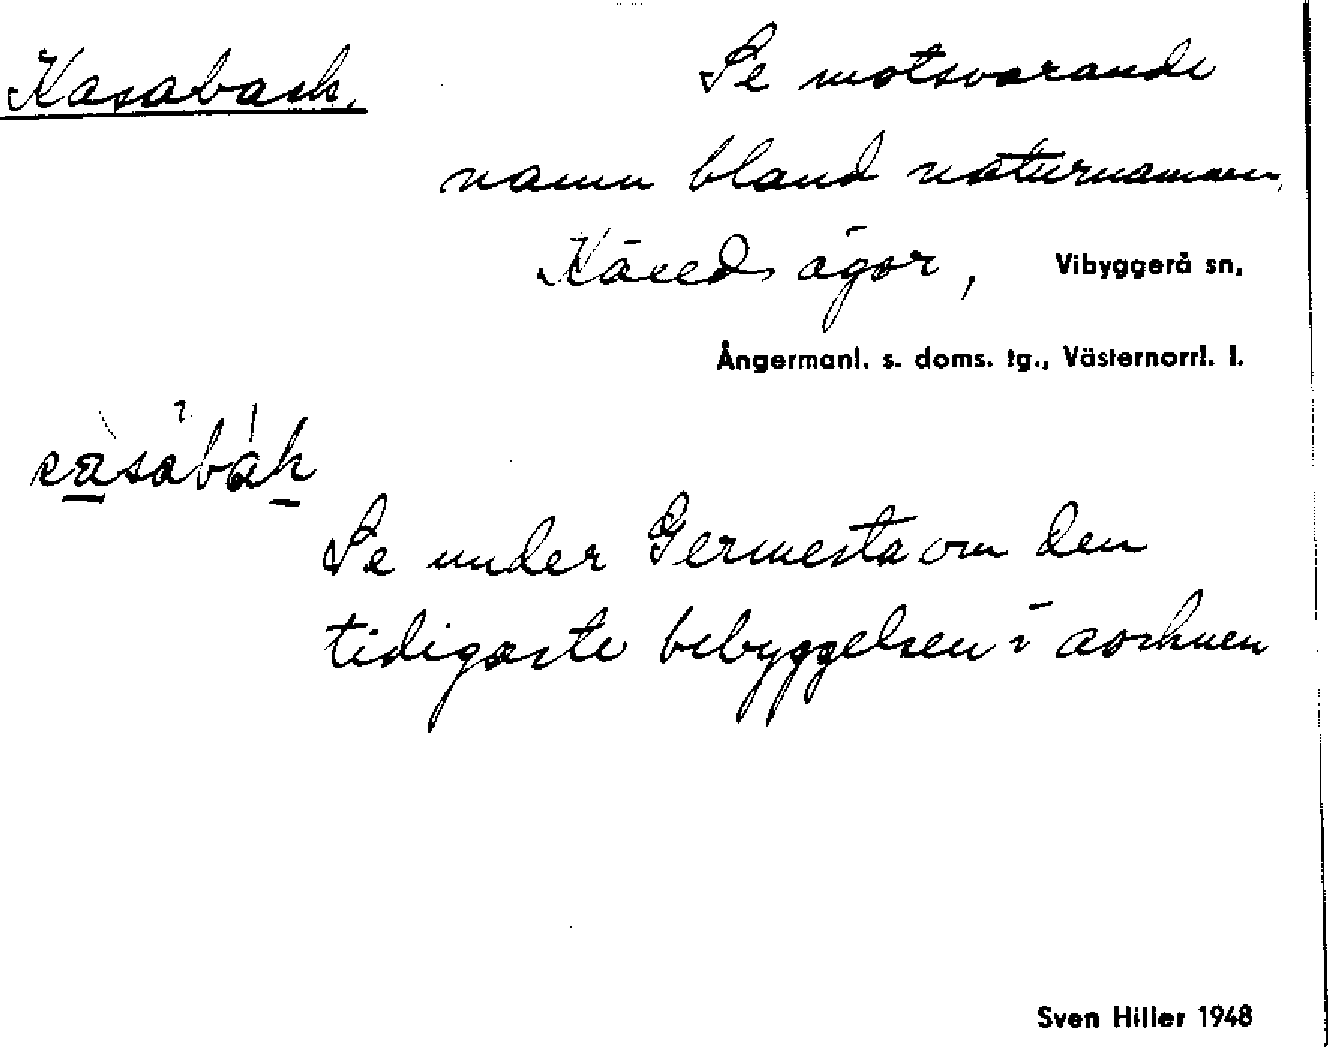 Kasaback. Se motsvarande
namn bland naturnamnen.
Käxeds ägor, Vibyggerå sn,
Ångermanl. s. doms. tg., Västernorrl. l.
Se under Germesta om den
tidigaste bebyggelsen i socknen
Sven Hiller 1948